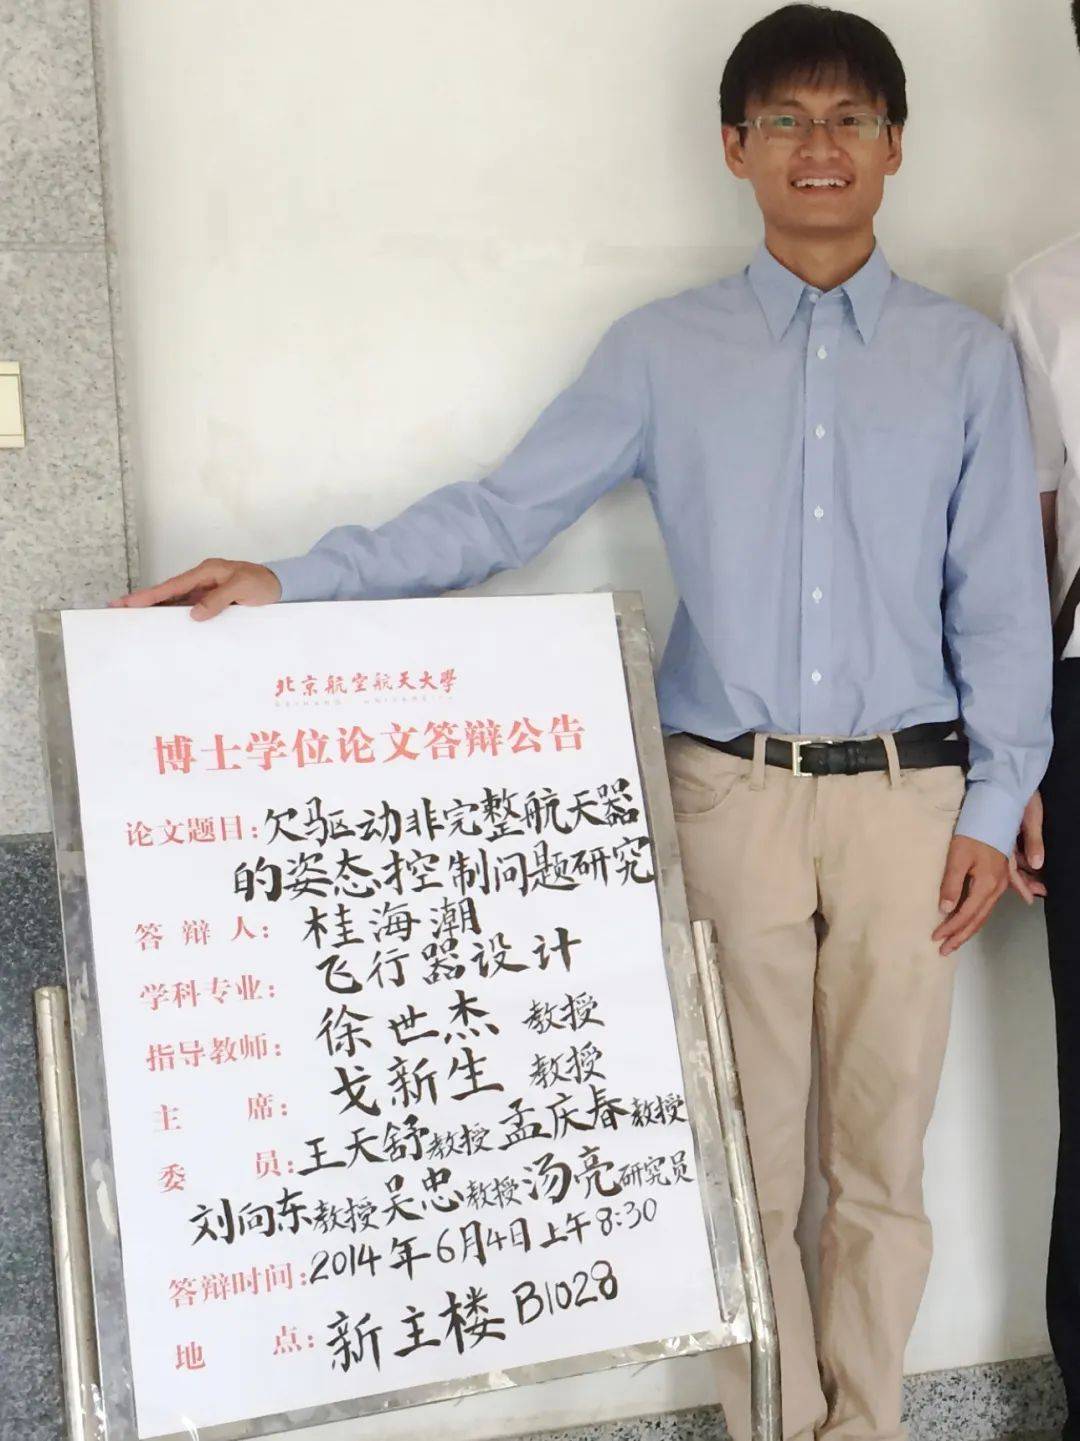 北京航空航天大學
博士学位论文答辩公告
论文题目：欠驱动非完整航天器
的姿态控制问题研究
答辩人：桂海潮
学科专业：飞行器设计
指导教师：徐世杰 教授
主席：戈新生 教授
委员：王天舒教授 孟庆春教授
刘向东教授 吴忠教授 汤亮研究员
答辩时间：2014年6月4日上午8:30
地点：新主楼B1028